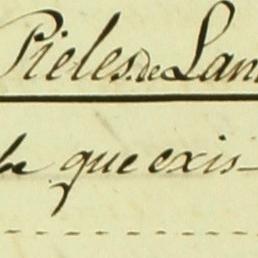 Pieles de Lan
que exis-